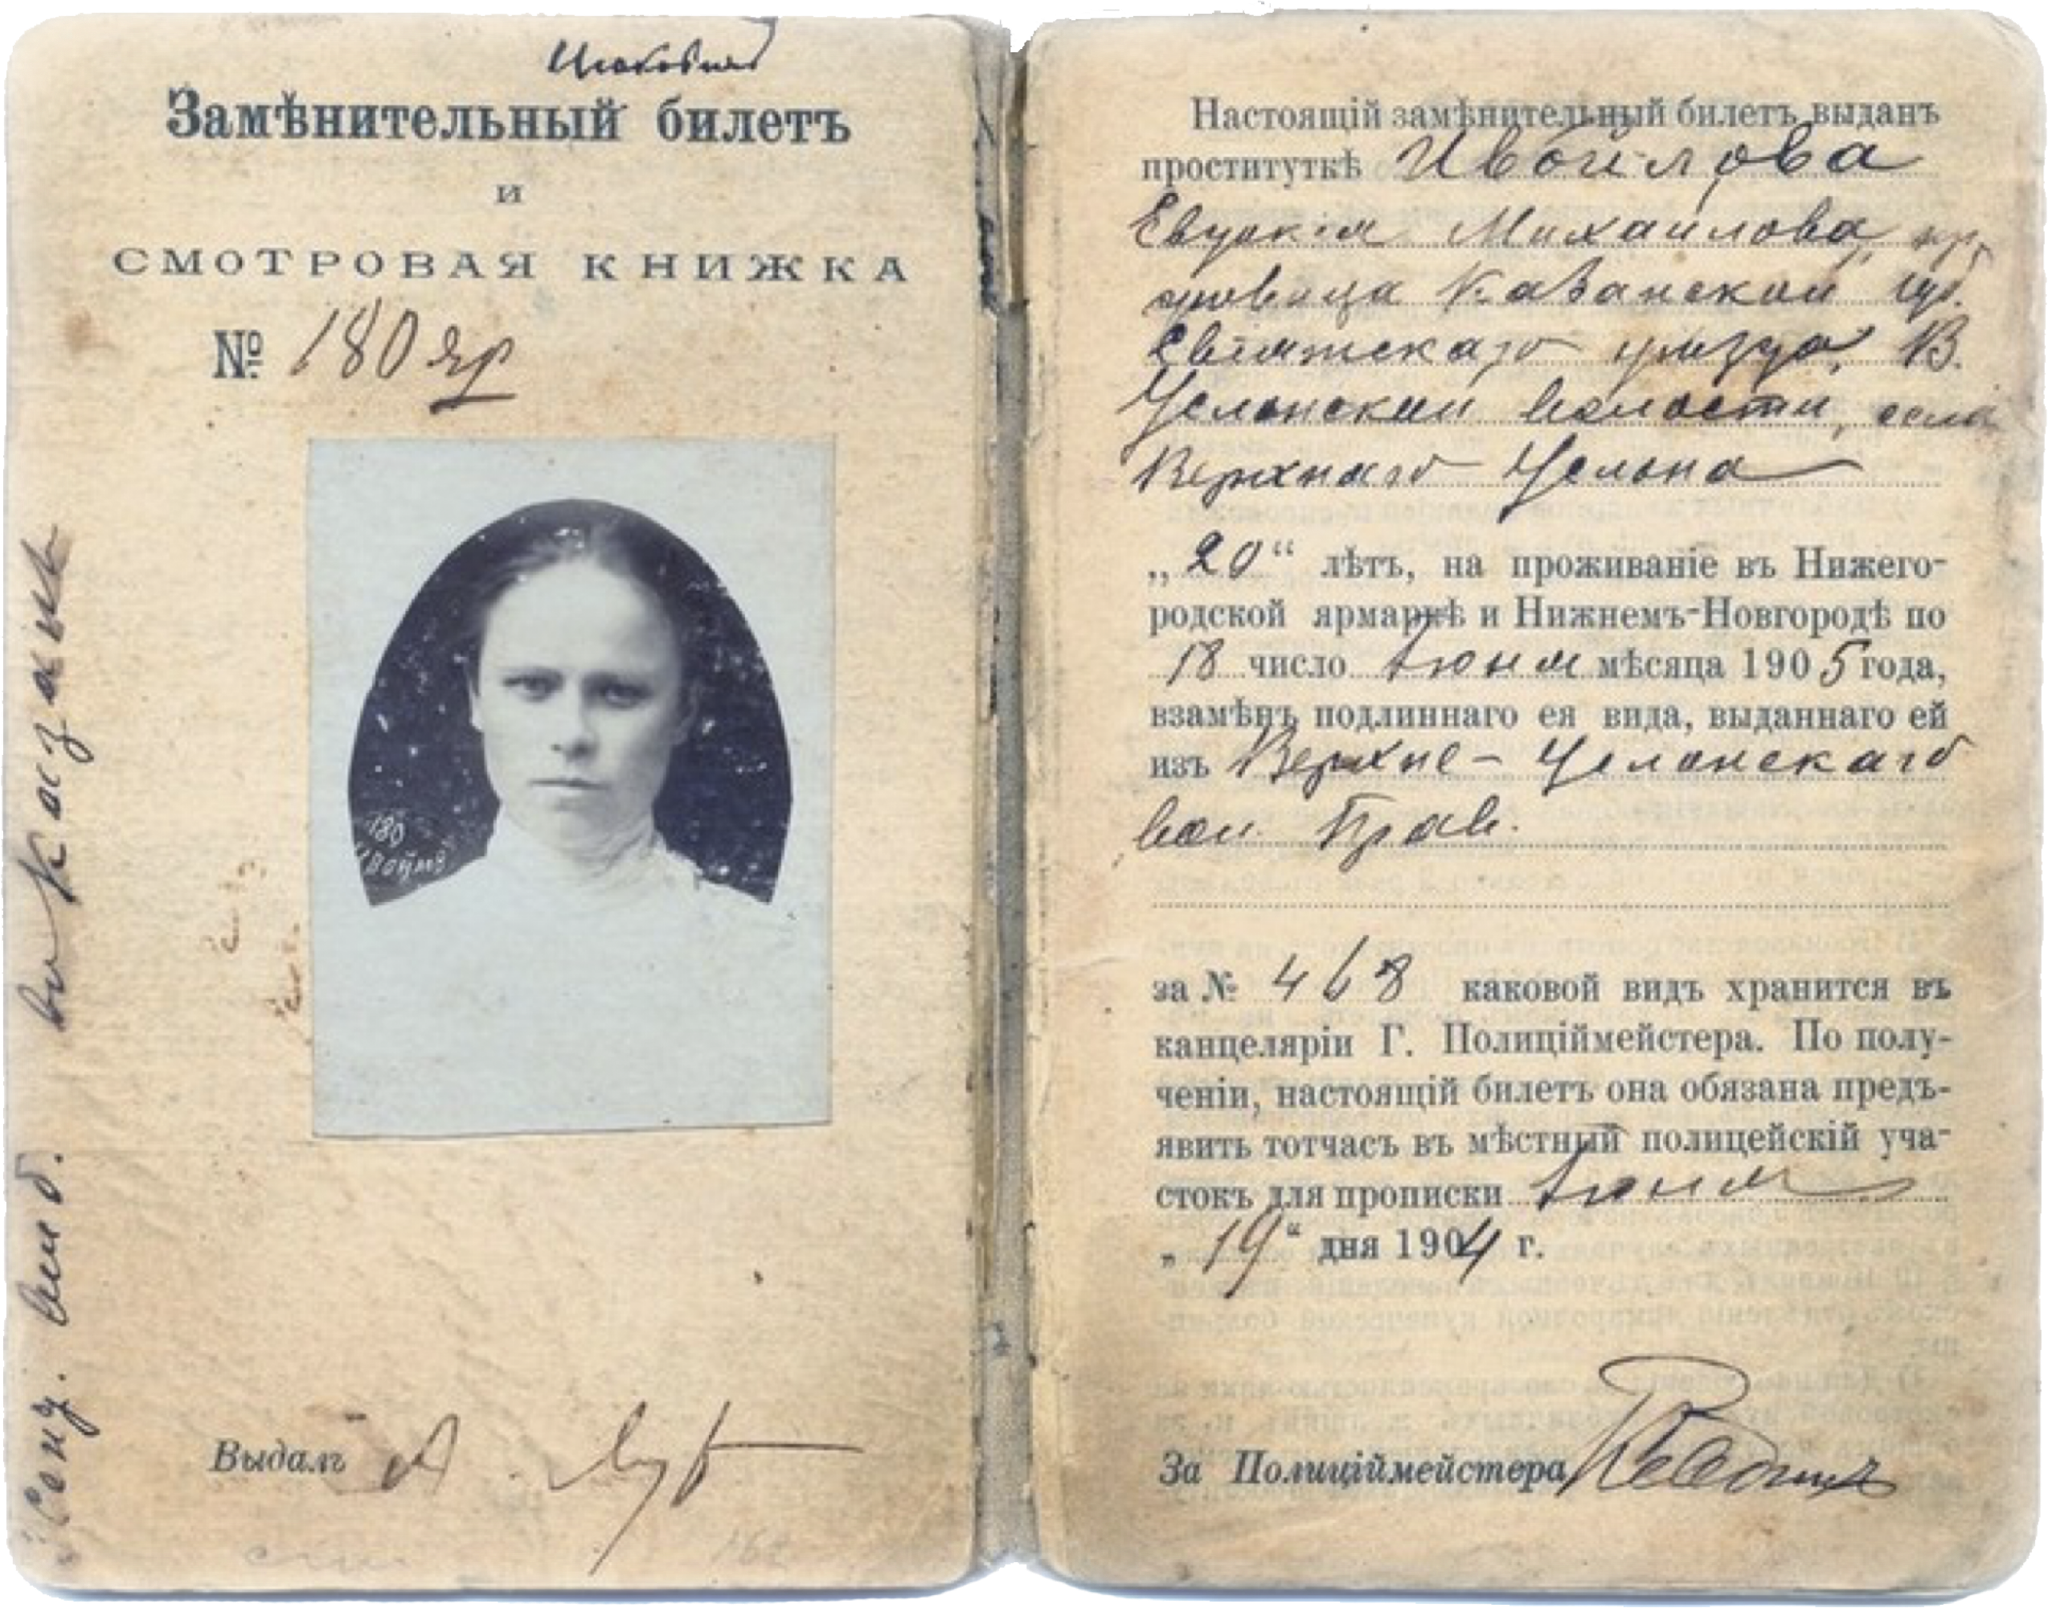 Замѣнительный билетъ
и
СМОТРОВАЯ КНИЖКА
№ 180 яр
180
Выдалъ А.
въ Казань
Настоящій замѣнительный билетъ выданъ
проституткѣ Ивойлова
Евдокія Михайлова, кр.
Казанской губ.
Свіяжскаго уѣзда, В.
Услонской волости, села
Верхняго Услона
„20“ лѣтъ, на проживаніе въ Нижего-
родской ярмаркѣ и Нижнемъ-Новгородѣ по
18 число Іюня мѣсяца 1905 года,
взамѣнъ подлиннаго ея вида, выданнаго ей
изъ Верхне-Услонскаго
вол. Прав.
за № 468 каковой видъ хранится въ
канцеляріи Г. Полиціймейстера. По полу-
ченіи, настоящій билетъ она обязана предъ-
явить тотчасъ въ мѣстный полицейскій уча-
стокъ для прописки Іюня
„19“ дня 1904 г.
За Полиціймейстера